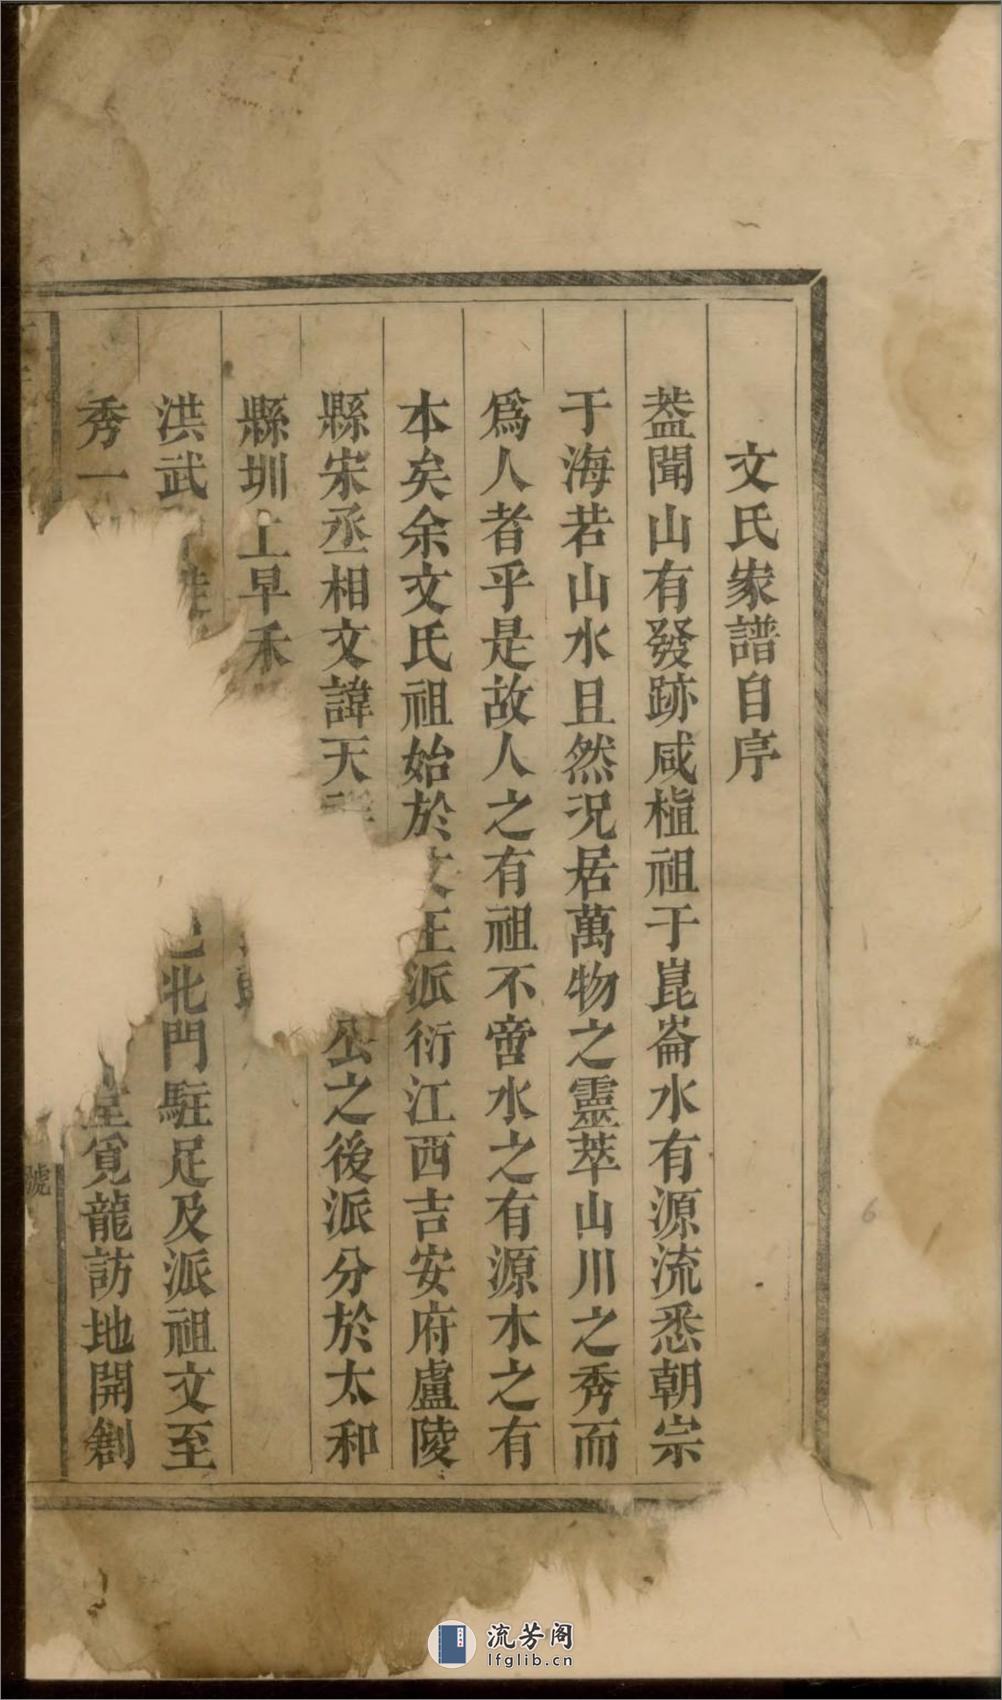 文氏家譜自序
葢聞山有發跡咸植祖于崑崙水有源流悉朝宗
于海若山水且然况居萬物之靈萃山川之秀而
爲人者乎是故人之有祖不啻水之有源木之有
本矣余文氏祖始於文王派衍江西吉安府盧陵
縣宋丞相文諱天祥公之後派分於太和
縣圳上早禾
洪武北門駐足及派祖文至
秀一堂覓龍訪地開創
號
流芳阁
lfglib.cn